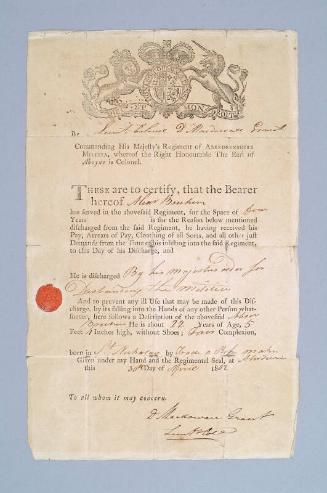 ET MON
By Lieut. Colonel D. Grant
COMMANDING His Majesty's Regiment of ABERDEENSHIRE
MILITIA, whereof the Right Honourable The Earl of
Aboyne is Colonel.
THESE are to certify, that the Bearer
hereof Alexr
has served in the aforesaid Regiment, for the Space of four
Years is for the Reason below mentioned
discharged from the said Regiment, he having received his
Pay, Arrears of Pay, Cloathing of all Sorts, and all other just
Demands from the Time of his inlisting into the said Regiment,
to this Day of his Discharge, and
He is discharged By his majesties order for
Disbanding the Militia
And to prevent any ill Use that may be made of this Dis-
charge, by its falling into the Hands of any other Person what-
soever, here follows a Description of the aforesaid Alexr
He is about 22 Years of Age, 5
Feet Inches high, without Shoes; Fair Complexion,
born in St. Nicholas by Trade a maker
Given under my Hand and the Regimental Seal, at Aberdeen
this Day of April 1802
To all whom it may concern.
D Grant
Lieut Col